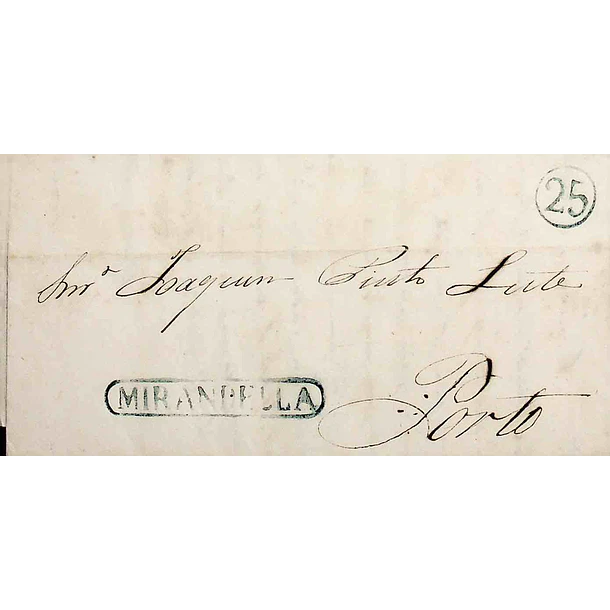 25
Snr Joaquim Pinto Leite
MIRANDELLA
Porto